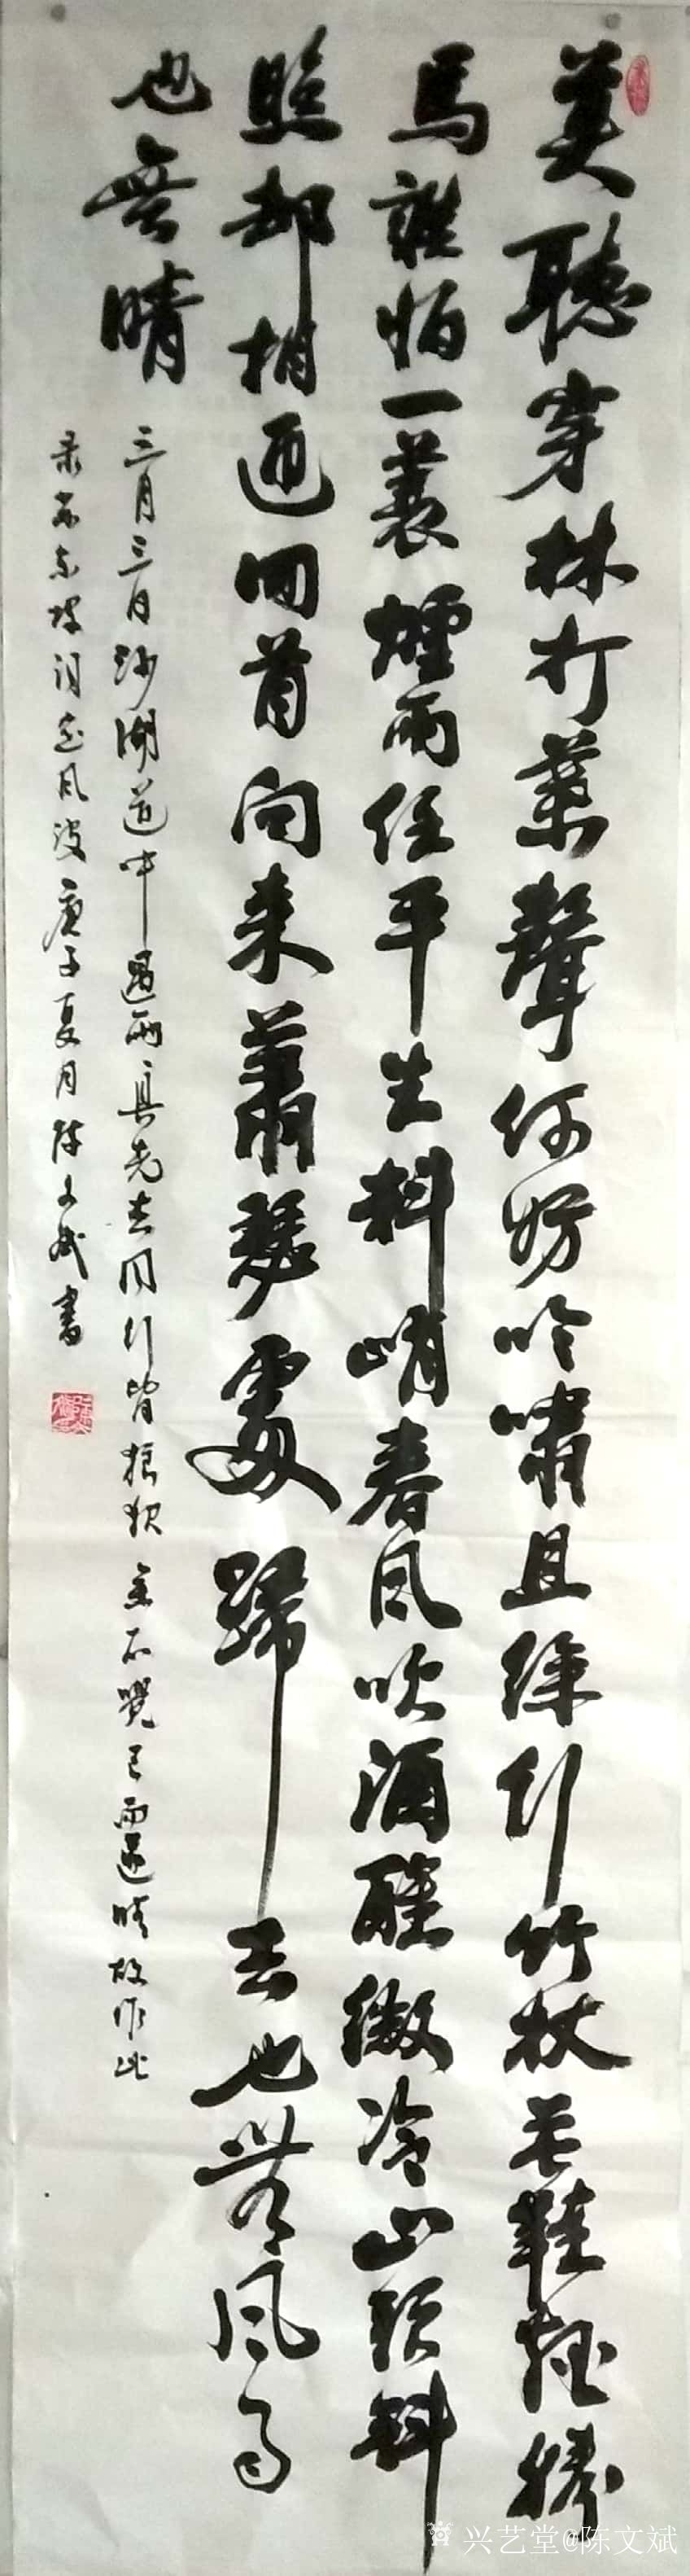 莫聽穿林打葉聲何妨吟嘯且徐行竹杖芒鞋輕勝
馬誰怕一蓑煙雨任平生料峭春风吹酒醒微冷山頭斜
照却相迎回首向来蕭瑟處歸去也無风雨
也無晴
三月三日沙湖道中遇雨雨具先去同行皆狼狈余不覺已而遂晴故作此
录苏东坡词定风波庚子夏月陈文斌书
兴艺堂@陈文斌